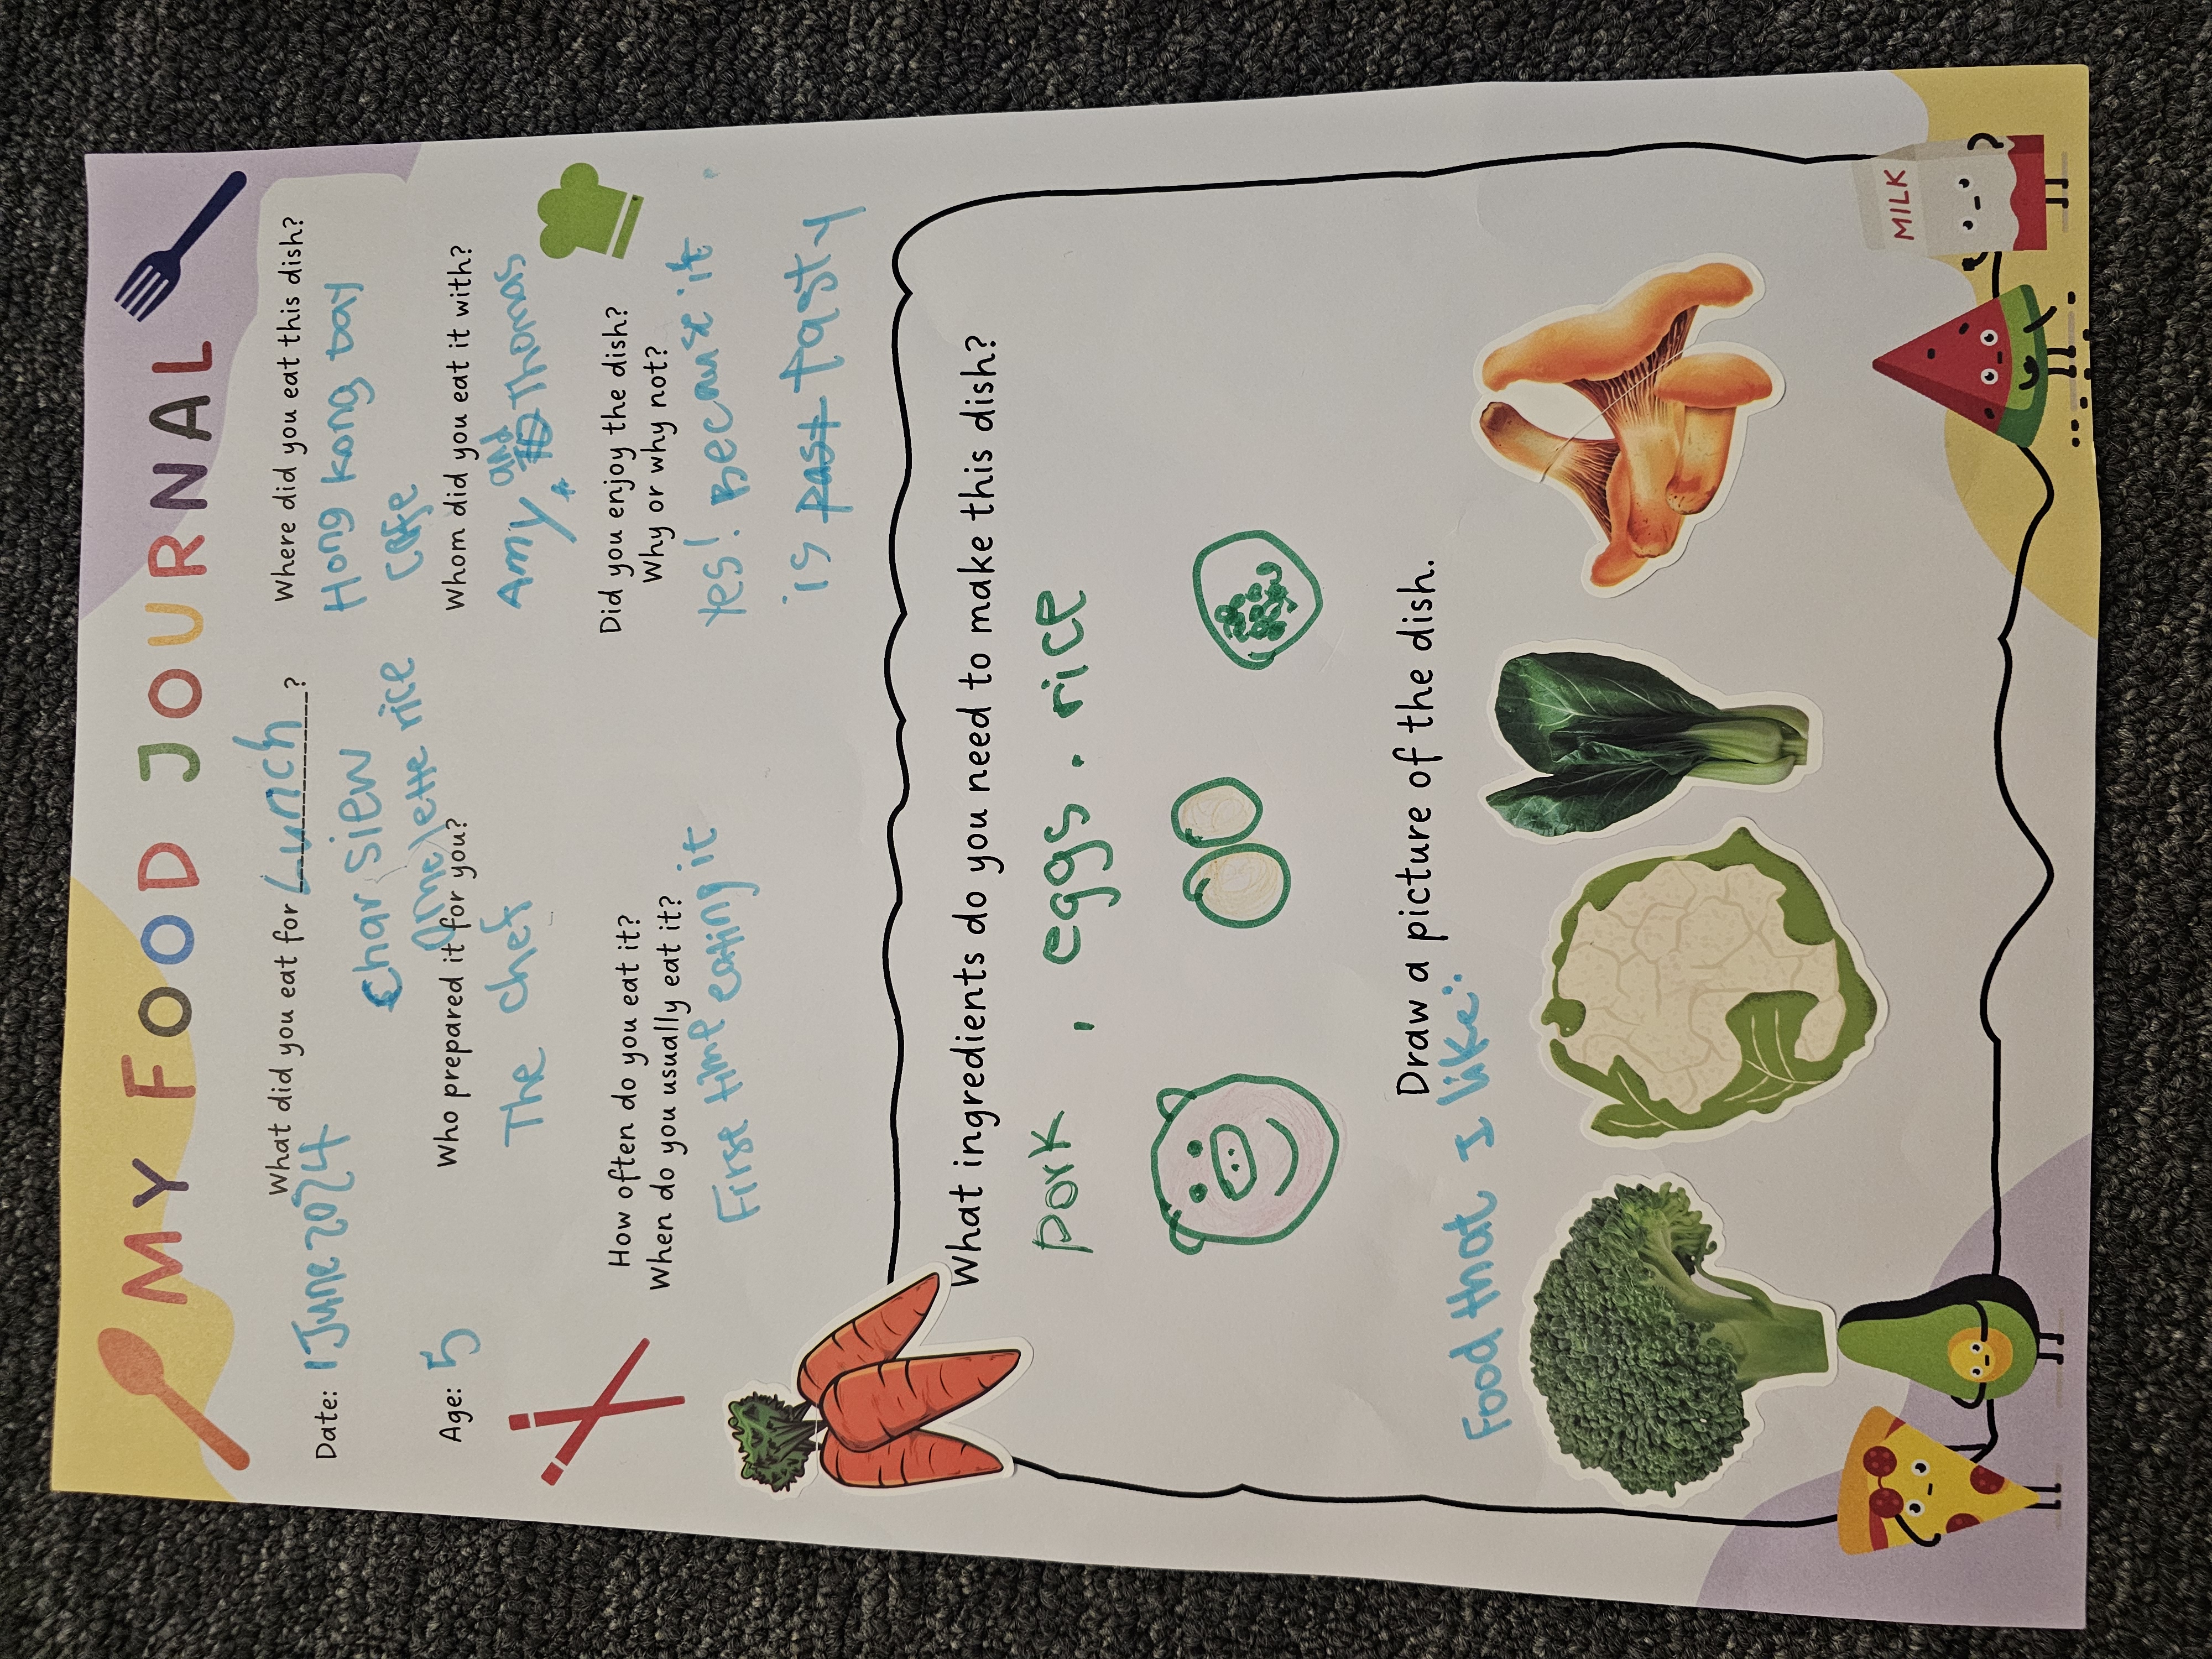 MY FOOD JOURNAL
Date: 1 June 2024
Age: 5
What did you eat for Lunch?
Char siew
omelette rice
Who prepared it for you?
The chef
How often do you eat it?
When do you usually eat it?
First time eating it
Where did you eat this dish?
Hong Kong bay
cafe
Whom did you eat it with?
Amy, and Thomas
Did you enjoy the dish?
Why or why not?
Yes! Because it
is tasty
What ingredients do you need to make this dish?
pork , eggs . rice
Draw a picture of the dish.
Food that I like:
MILK